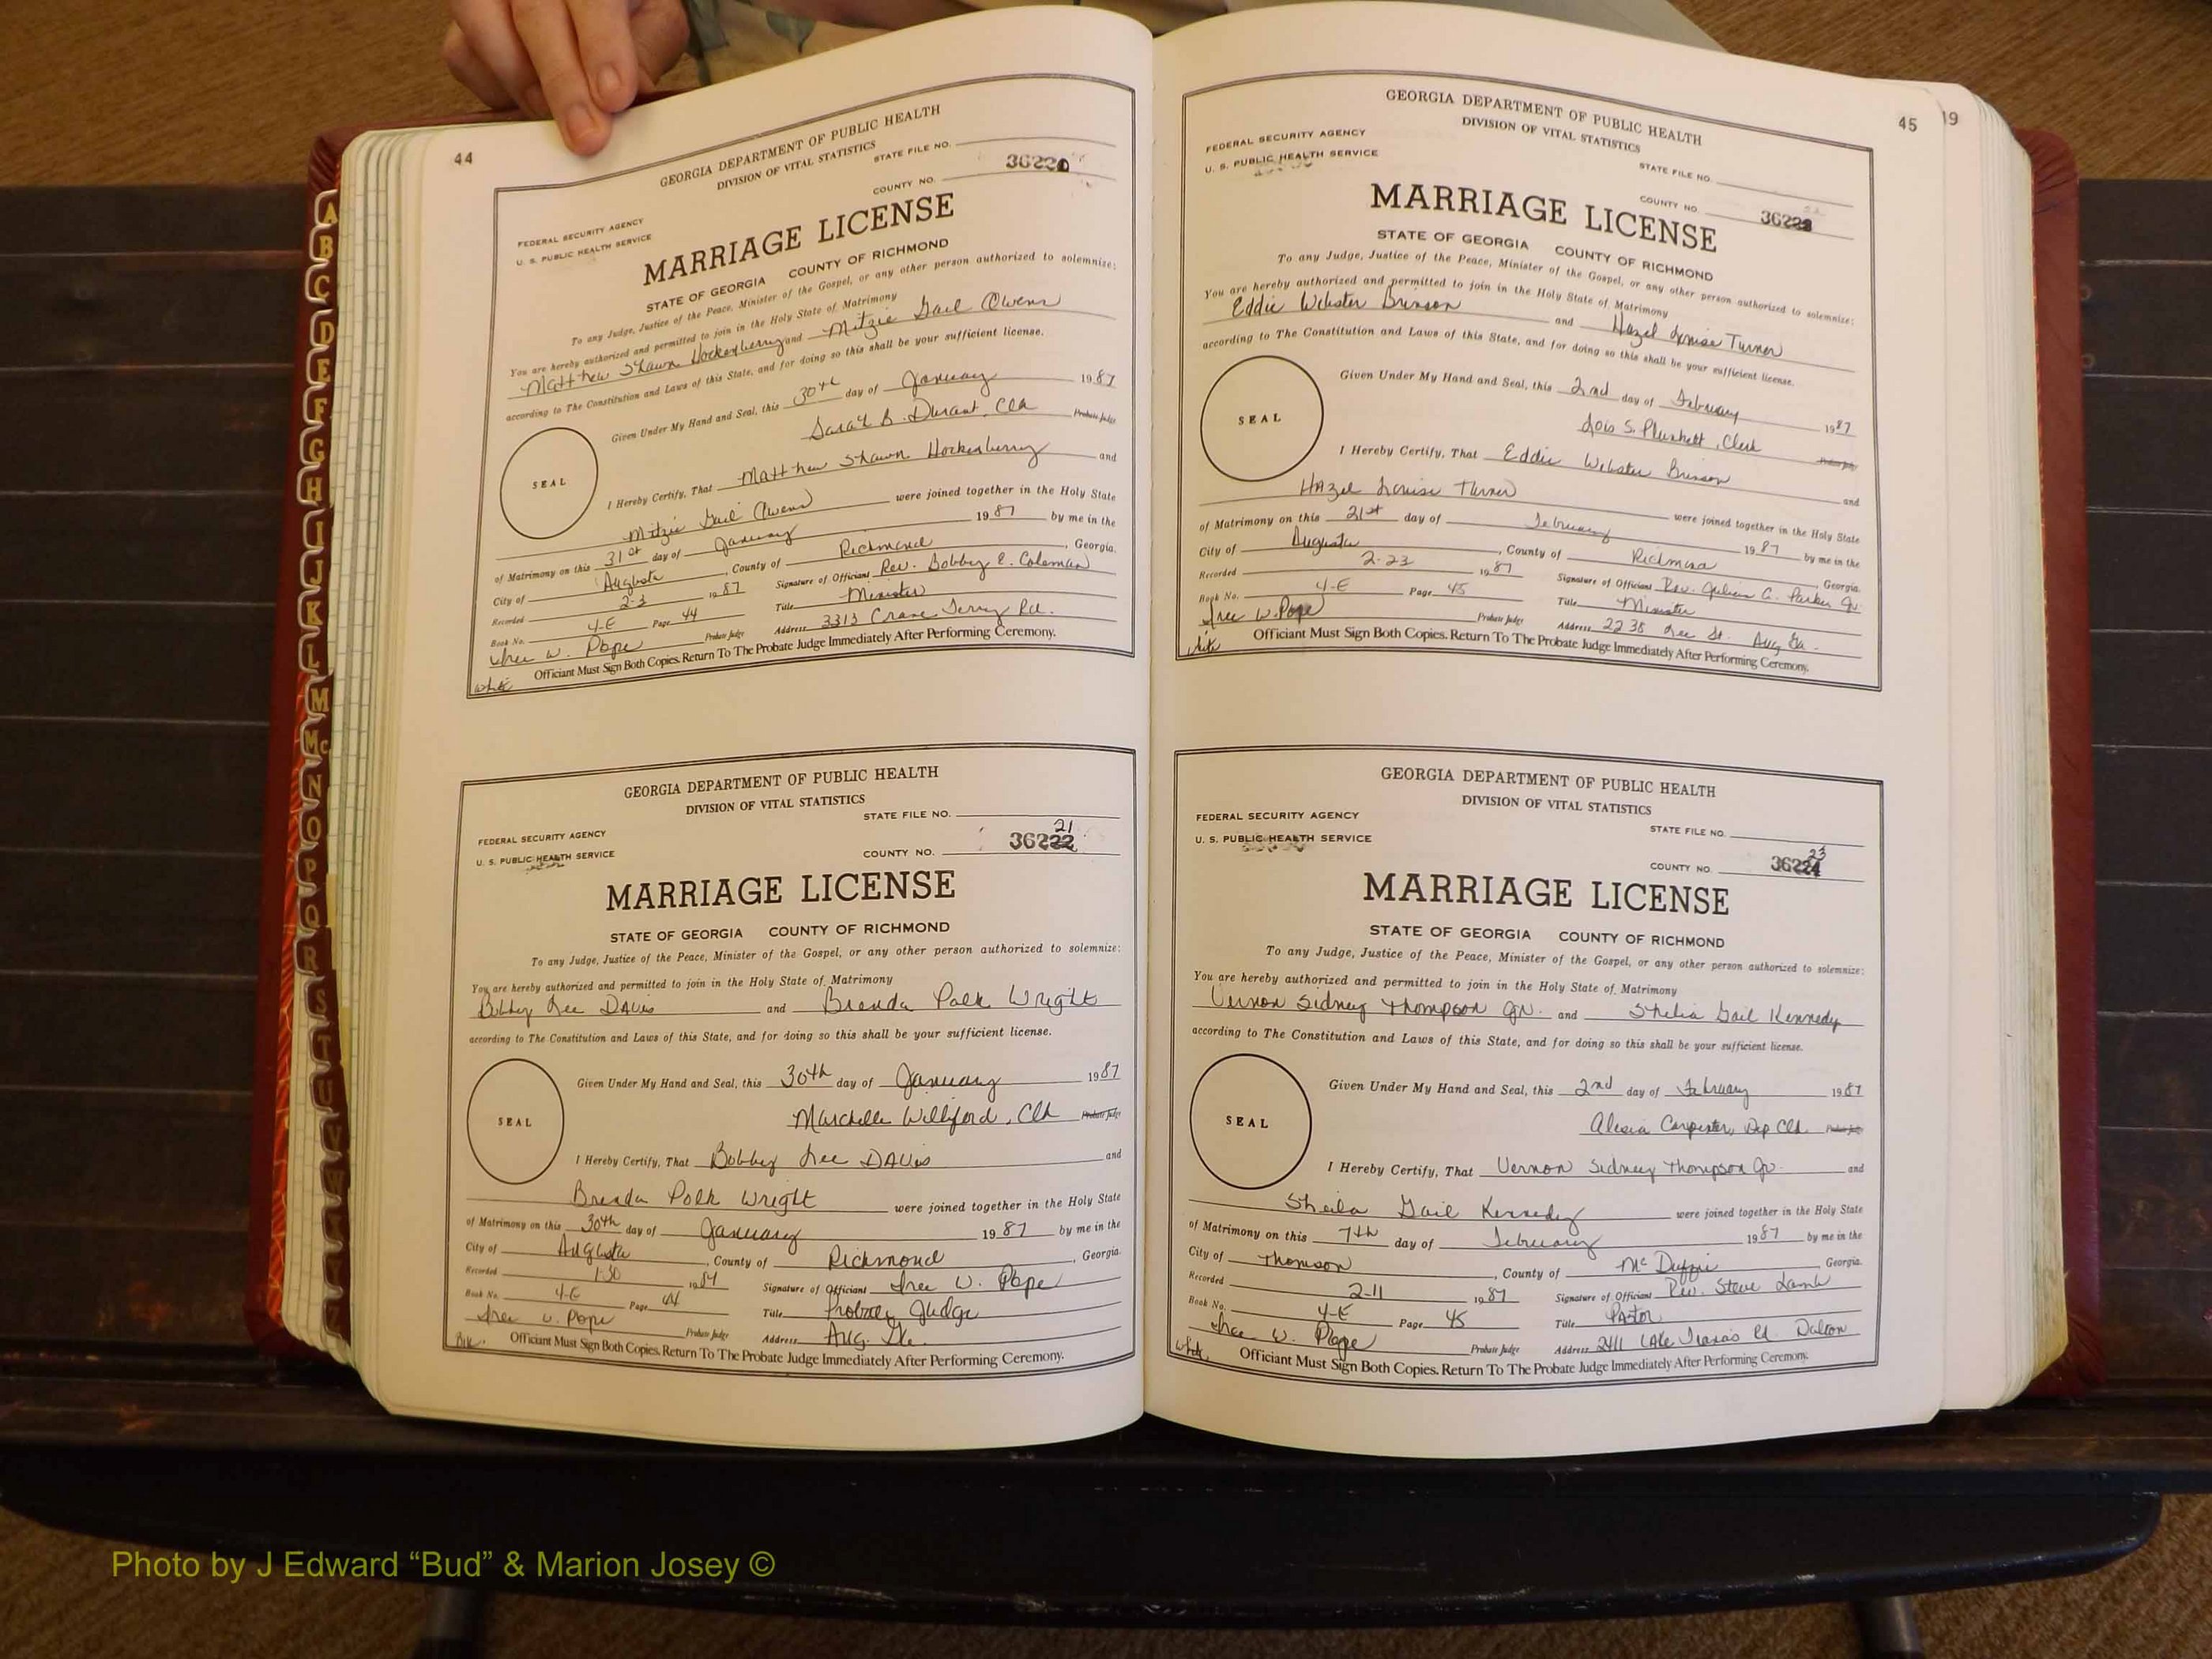 44
GEORGIA DEPARTMENT OF PUBLIC HEALTH
DIVISION OF VITAL STATISTICS
STATE FILE NO.
COUNTY NO. 36220
FEDERAL SECURITY AGENCY
U. S. PUBLIC HEALTH SERVICE
MARRIAGE LICENSE
STATE OF GEORGIA COUNTY OF RICHMOND
To any Judge, Justice of the Peace, Minister of the Gospel, or any other person authorized to solemnize:
You are hereby authorized and permitted to join in the Holy State of Matrimony
Matthew Shawn Hockenberry and Mitzie Gail Owens
according to The Constitution and Laws of this State, and for doing so this shall be your sufficient license.
Given Under My Hand and Seal, this 30th day of January 1987
Sarah B. Durant, Clk Probate Judge
SEAL
I Hereby Certify, That Matthew Shawn Hockenberry and
Mitzie Gail Owens were joined together in the Holy State
of Matrimony on this 31st day of January 1987 by me in the
City of Augusta, County of Richmond, Georgia.
Recorded 2-3 1987 Signature of Officiant Rev. Bobby E. Coleman
Book No. 4-E Page 44 Title Minister
Iree W. Pope Probate Judge Address 3313 Crane Ferry Rd.
White Officiant Must Sign Both Copies. Return To The Probate Judge Immediately After Performing Ceremony.
GEORGIA DEPARTMENT OF PUBLIC HEALTH
DIVISION OF VITAL STATISTICS
STATE FILE NO.
FEDERAL SECURITY AGENCY
U. S. PUBLIC HEALTH SERVICE
21
COUNTY NO. 36222
MARRIAGE LICENSE
STATE OF GEORGIA COUNTY OF RICHMOND
To any Judge, Justice of the Peace, Minister of the Gospel, or any other person authorized to solemnize:
You are hereby authorized and permitted to join in the Holy State of Matrimony
Bobby Lee DAvis and Brenda Polk Wright
according to The Constitution and Laws of this State, and for doing so this shall be your sufficient license.
Given Under My Hand and Seal, this 30th day of January 1987
Marchelle Williford, Clk Probate Judge
SEAL
I Hereby Certify, That Bobby Lee DAvis and
Brenda Polk Wright were joined together in the Holy State
of Matrimony on this 30th day of January 1987 by me in the
City of Augusta, County of Richmond, Georgia.
Recorded 1-30 19 Signature of Officiant Iree W. Pope
Book No. 4-E Page 44 Title Probate Judge
Iree W. Pope Probate Judge Address Aug. Ga.
Blk. Officiant Must Sign Both Copies. Return To The Probate Judge Immediately After Performing Ceremony.
45
19
GEORGIA DEPARTMENT OF PUBLIC HEALTH
DIVISION OF VITAL STATISTICS
FEDERAL SECURITY AGENCY
U. S. PUBLIC HEALTH SERVICE
STATE FILE NO.
COUNTY NO.
MARRIAGE LICENSE
STATE OF GEORGIA COUNTY OF RICHMOND
To any Judge, Justice of the Peace, Minister of the Gospel, or any other person authorized to solemnize:
You are hereby authorized and permitted to join in the Holy State of Matrimony
Eddie Webster Brinson and Hazel Louise Turner
according to The Constitution and Laws of this State, and for doing so this shall be your sufficient license.
Given Under My Hand and Seal, this 2nd day of February 1987
Lois S. Plunkett, Clerk Probate Judge
SEAL
I Hereby Certify, That Eddie Webster Brinson and
HAzel Louise Turner were joined together in the Holy State
of Matrimony on this 21st day of February 1987 by me in the
City of Augusta, County of Richmond, Georgia.
Recorded 2-23 1987 Signature of Officiant Rev. Julian C. Parker Jr.
Book No. 4-E Page 45 Title Minister
Iree W. Pope Probate Judge Address 2238 Lee St. Aug Ga.
Officiant Must Sign Both Copies. Return To The Probate Judge Immediately After Performing Ceremony.
GEORGIA DEPARTMENT OF PUBLIC HEALTH
DIVISION OF VITAL STATISTICS
FEDERAL SECURITY AGENCY
U. S. PUBLIC HEALTH SERVICE
STATE FILE NO.
23
COUNTY NO. 36224
MARRIAGE LICENSE
STATE OF GEORGIA COUNTY OF RICHMOND
To any Judge, Justice of the Peace, Minister of the Gospel, or any other person authorized to solemnize:
You are hereby authorized and permitted to join in the Holy State of Matrimony
Vernon Sidney Thompson Jr. and Shelia Gail Kennedy
according to The Constitution and Laws of this State, and for doing so this shall be your sufficient license.
Given Under My Hand and Seal, this 2nd day of February 1987
Alesia Carpenter, Dep Clk. Probate Judge
SEAL
I Hereby Certify, That Vernon Sidney Thompson Jr. and
Sheila Gail Kennedy were joined together in the Holy State
of Matrimony on this 7th day of February 1987 by me in the
City of Thomson, County of McDuffie Georgia.
Recorded 2-11 1987 Signature of Officiant Rev. Steve Lamb
Book No. 4-E Page 45 Title PAstor
Iree W. Pope Probate Judge Address 2411 LAke Rd. Dalton
White Officiant Must Sign Both Copies. Return To The Probate Judge Immediately After Performing Ceremony.
A
B
C
D
E
F
G
H
I
J
K
L
M
Mc
N
O
P
Q
R
S
T
U
V
Photo by J Edward “Bud” & Marion Josey ©